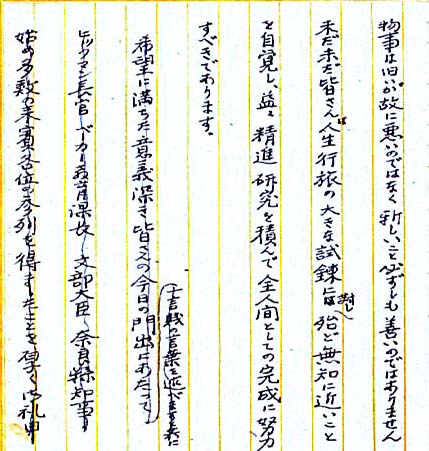 物事は旧いが故に悪いのではなく新しいこと必ずしも善いのではありません
未だ未だ皆さんは人生行旅の大きな試錬に対し殆ど無知に近いこと
を自覚し、益々精進研究を積んで全人間としての完成に努力
すべきであります。
希望に満ちた意義深き皆さんの今日の門出にあたって
言葉を述べますと共に
長官 教育課長、文部大臣、奈良県知事
始め多数の来賓各位の参列を得ましたことを厚く御礼申